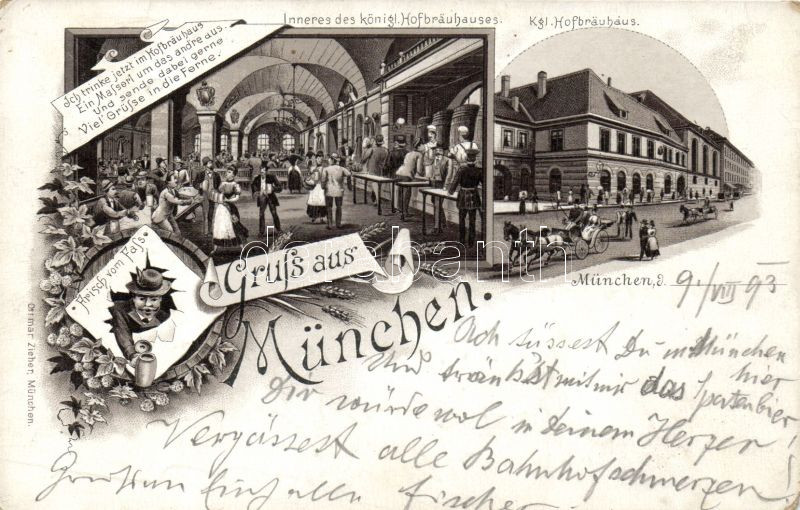 Inneres des königl. Hofbräuhauses.
Kgl. Hofbräuhaus.
Ich trinke jetzt im Hofbräuhaus
Ein Masserl um das andre aus.
Und sende dabei gerne
Viel Grüsse in die Ferne.
Frisch vom Fass.
Gruss aus
München.
Ottmar Zieher, München.
München, d. 9/VIII 93
Ach süssest Du in München hier
Und tränkst mit mir das Spatenbier!
Dir würde wol in deinem Herzen
Vergässest alle Bahnhofschmerzen!
alle Fischer
darabanth